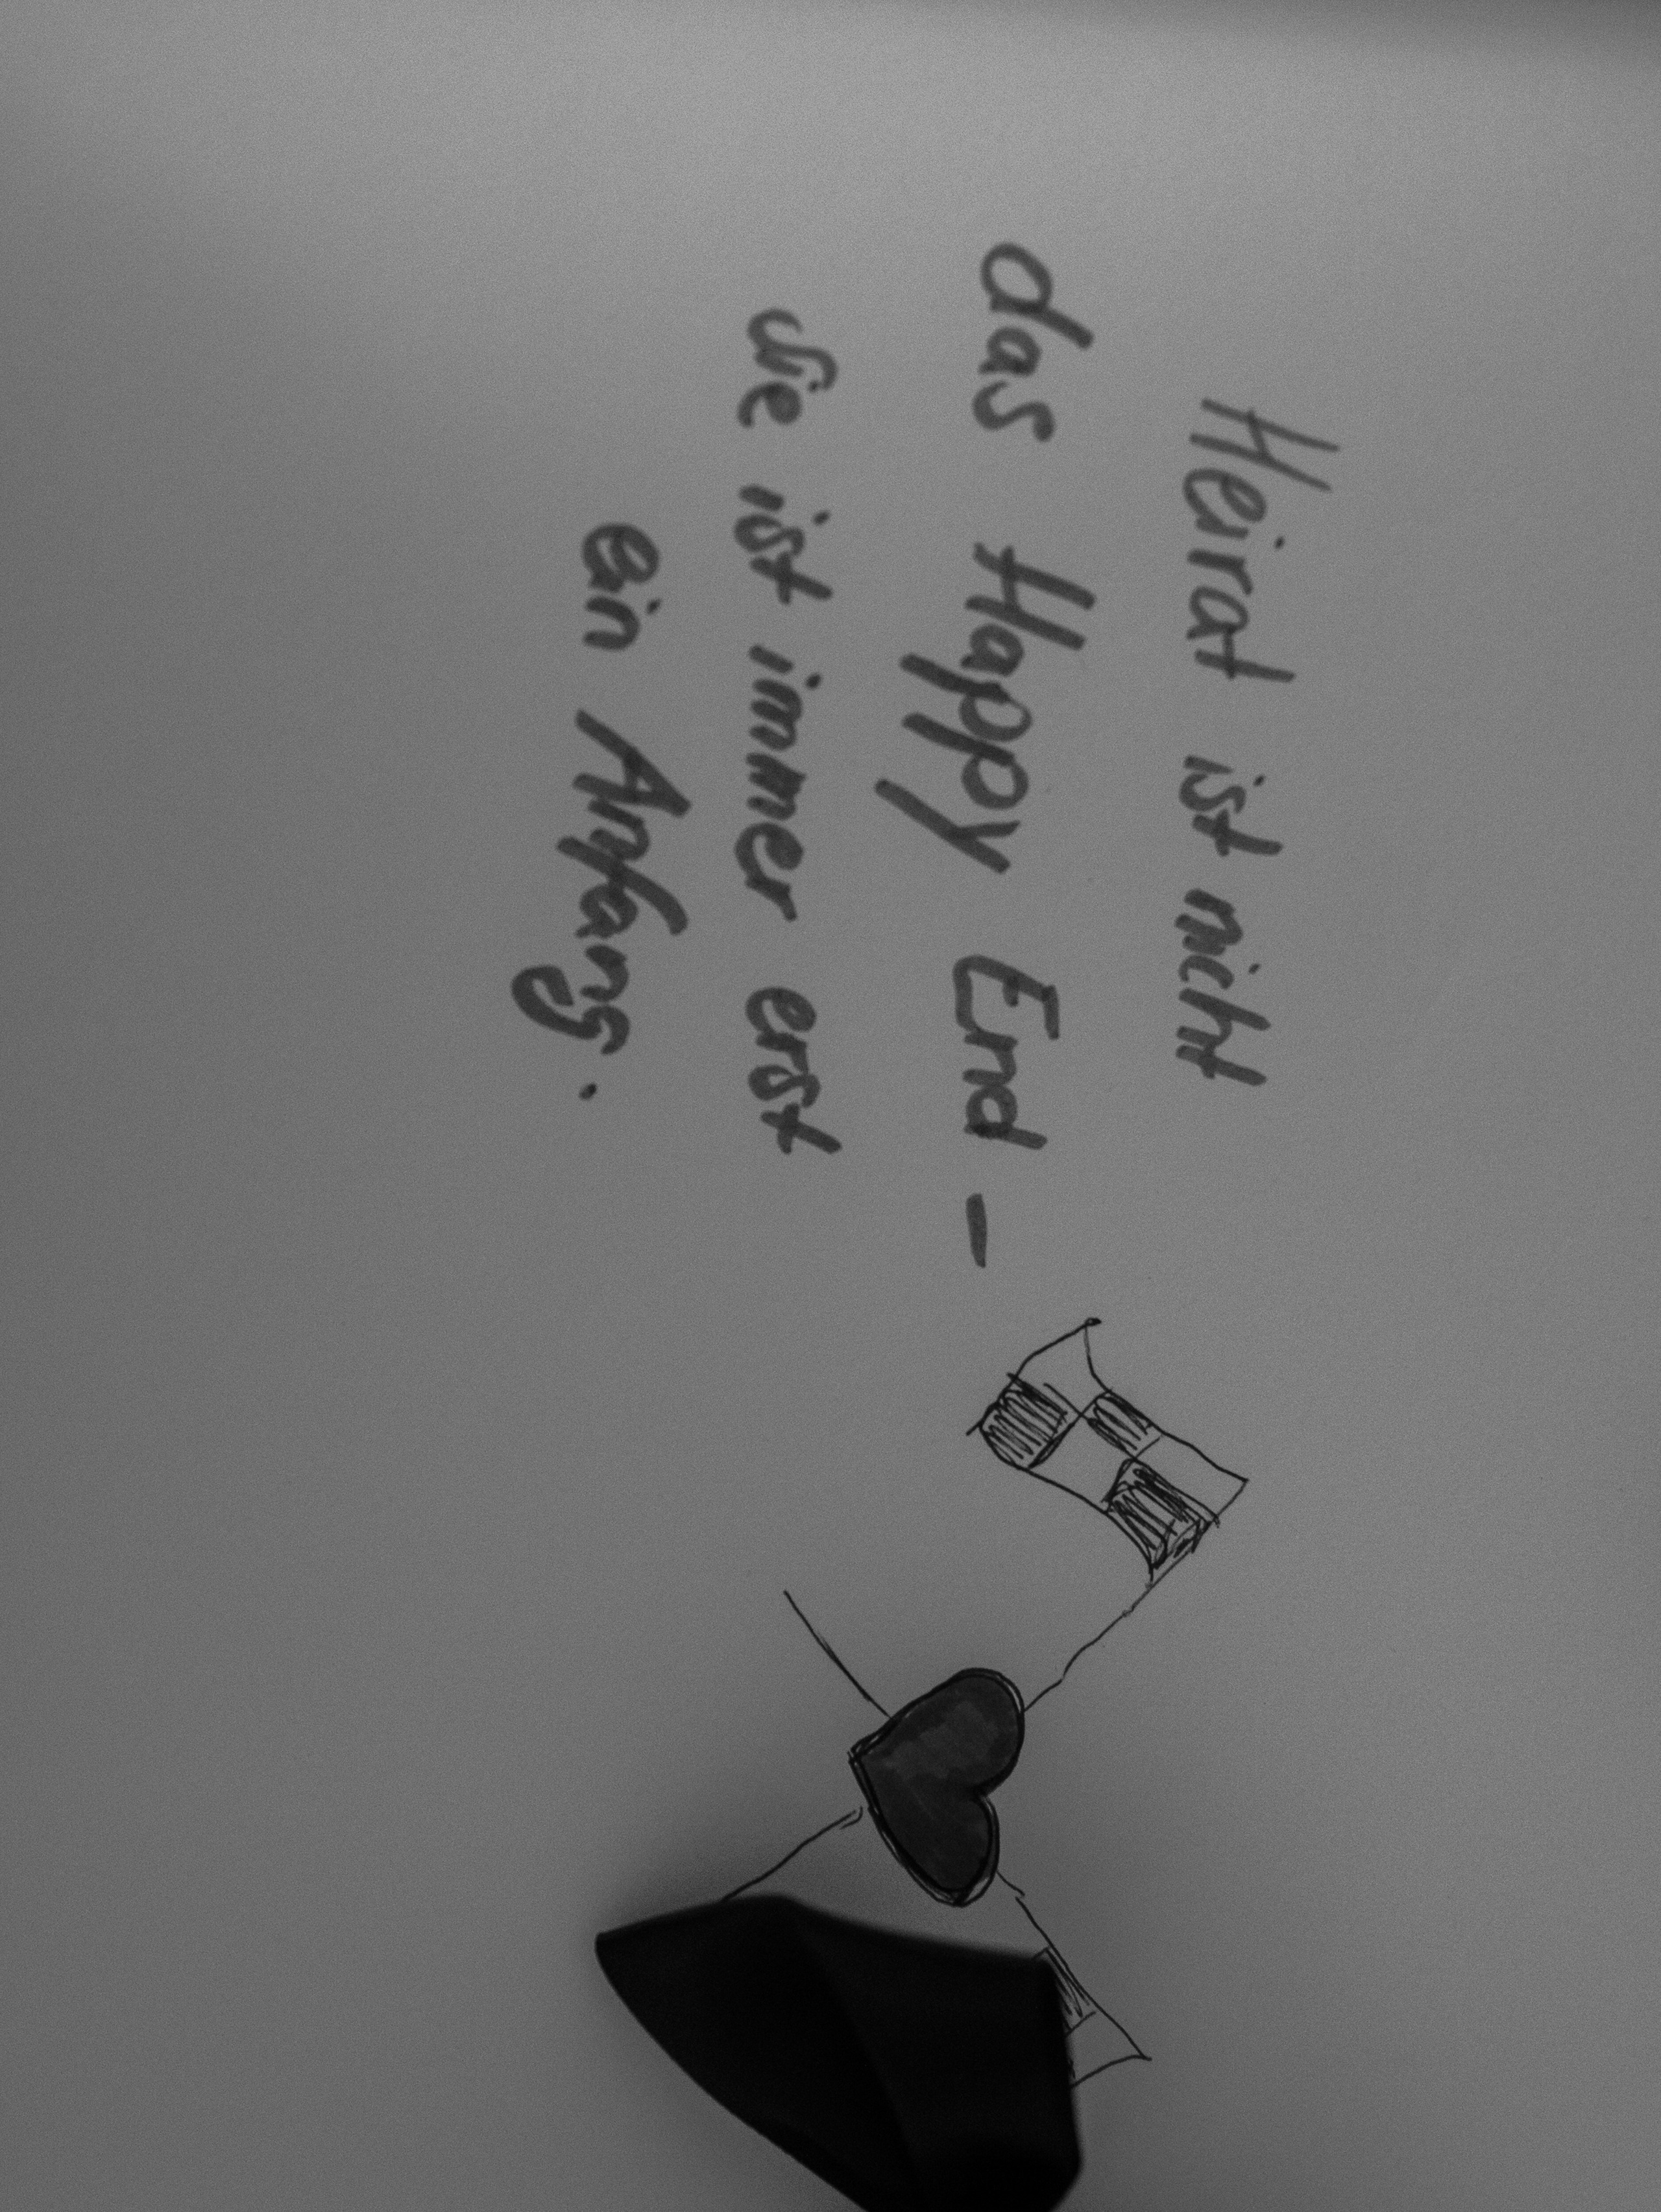 Heirat ist nicht
das Happy End -
sie ist immer erst
ein Anfang.